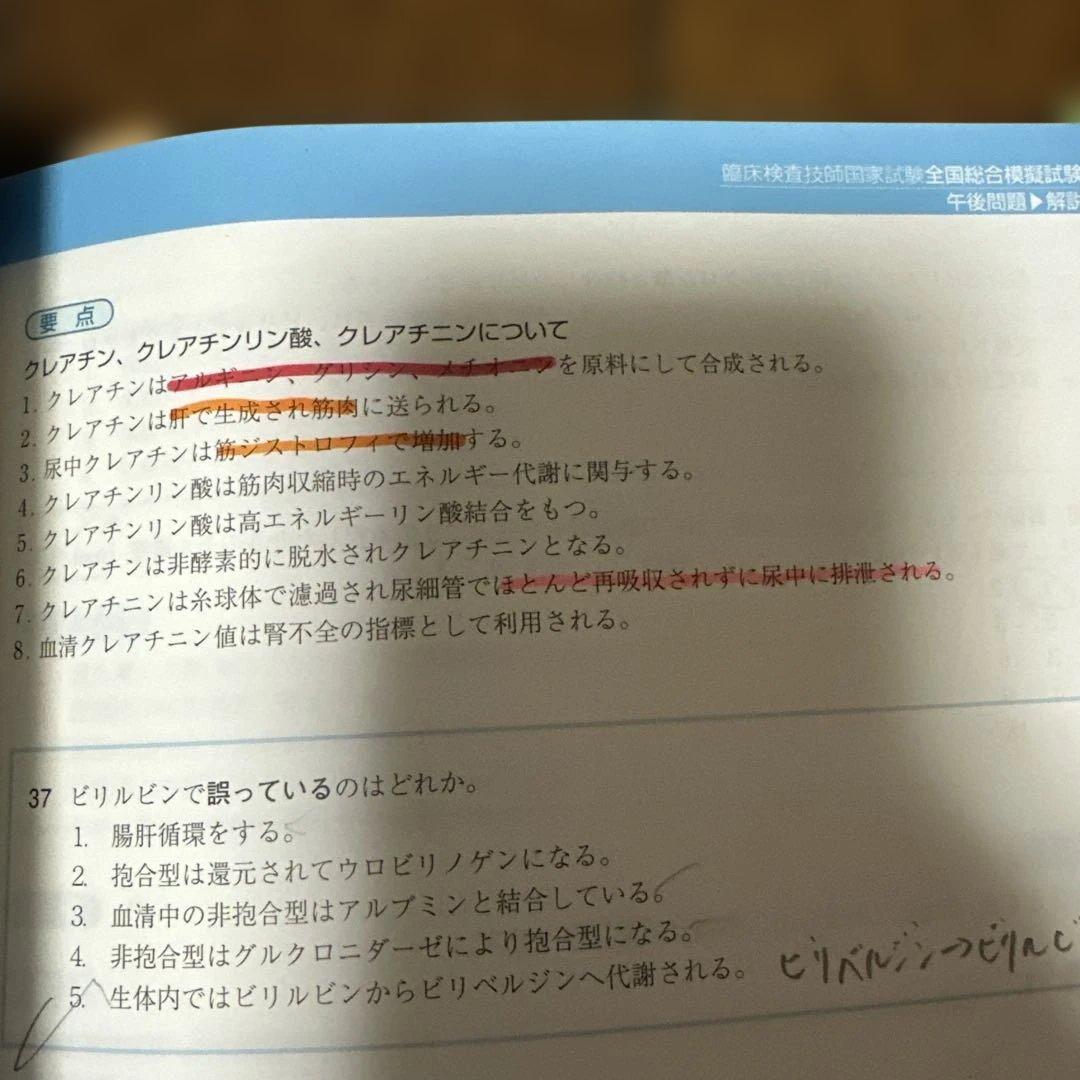 臨床検査技師国家試験全国総合模擬試験
午後問題▶解説
要点
クレアチン、クレアチンリン酸、クレアチニンについて
1. クレアチンはアルギニン、グリシン、メチオニンを原料にして合成される。
2. クレアチンは肝で生成され筋肉に送られる。
3. 尿中クレアチンは筋ジストロフィで増加する。
4. クレアチンリン酸は筋肉収縮時のエネルギー代謝に関与する。
5. クレアチンリン酸は高エネルギーリン酸結合をもつ。
6. クレアチンは非酵素的に脱水されクレアチニンとなる。
7. クレアチニンは糸球体で濾過され尿細管でほとんど再吸収されずに尿中に排泄される。
8. 血清クレアチニン値は腎不全の指標として利用される。
37 ビリルビンで誤っているのはどれか。
1. 腸肝循環をする。
2. 抱合型は還元されてウロビリノゲンになる。
3. 血清中の非抱合型はアルブミンと結合している。
4. 非抱合型はグルクロニダーゼにより抱合型になる。
5. 生体内ではビリルビンからビリベルジンへ代謝される。
ビリベルジン→ビリルビ